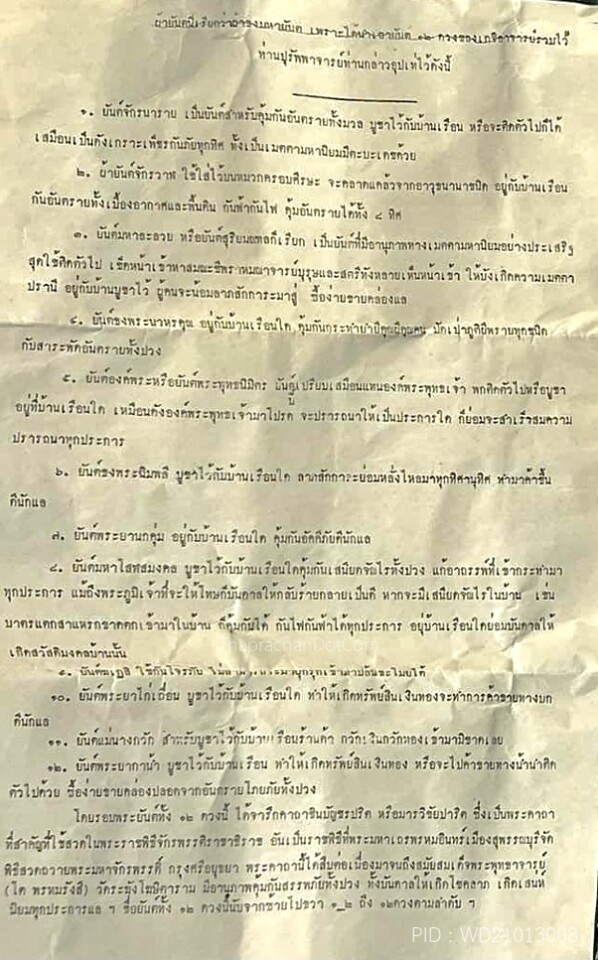 ผ้ายันต์นี้เรียกว่าผ้าธงมหายันต์ เพราะได้นำเอายันต์ ๑๒ ดวงของเกจิอาจารย์รวมไว้
ท่านปุรัพพาจารย์ท่านกล่าวอุปเท่ไว้ดังนี้
๑. ยันต์จักรนาราย เป็นยันต์สำหรับคุ้มกันอันตรายทั้งมวล บูชาไว้กับบ้านเรือน หรือจะติดตัวไปก็ได้
เสมือนเป็นดังเกราะเพ็ชรกันภัยทุกทิศ ทั้งเป็นเมตตามหานิยมมีตะบะเดชด้วย
๒. ผ้ายันต์จักรวาฬ ใช้ใส่ไว้บนหมวกครอบศีรษะ จะคลาดแคล้วจากอาวุธนานาชนิด อยู่กับบ้านเรือน
กันอันตรายทั้งเบื้องอากาศและพื้นดิน กันฟ้ากันไฟ คุ้มอันตรายได้ทั้ง ๔ ทิศ
๓. ยันต์มหาละลวย หรือยันต์สุริยมณฑลก็เรียก เป็นยันต์ที่มีอนุภาพทางเมตตามหานิยมอย่างประเสริฐ
สุดใช้ติดตัวไป เช็ดหน้าเข้าหาสมณะชีพราหมณาจารย์บุรุษและสตรีทั้งหลายเห็นหน้าเข้า ให้บังเกิดความเมตตา
ปรานี อยู่กับบ้านบูชาไว้ ผู้คนจะน้อมลาภสักการะมาสู่ ซื้อง่ายขายคล่องแล
๔. ยันต์ธงพระนาหรคุณ อยู่กับบ้านเรือนใด คุ้มกันกระทำย่ำยีคุณผีคุณคน มักเป่าภูติผีพรายทุกชนิด
กับสาระพัดอันตรายทั้งปวง
๕. ยันต์องค์พระหรือยันต์พระพุทธนิมิตร ยันต์นี้เปรียบเสมือนแทนองค์พระพุทธเจ้า พกติดตัวไปหรือบูชา
อยู่ที่บ้านเรือนใด เหมือนดังองค์พระพุทธเจ้ามาโปรด จะปรารถนาให้เป็นประการใด ก็ย่อมจะสำเร็จสมความ
ปรารถนาทุกประการ
๖. ยันต์ธงพระฉิมพลี บูชาไว้กับบ้านเรือนใด ลาภสักการะย่อมหลั่งไหลมาทุกทิศานุทิศ ทำมาค้าขึ้น
ดีนักแล
๗. ยันต์พระยานกคุ่ม อยู่กับบ้านเรือนใด คุ้มกันอัคคีภัยดีนักแล
๘. ยันต์มหาโสฬสมงคล บูชาไว้กับบ้านเรือนใดคุ้มกันเสนียดจัญไรทั้งปวง แก้อาถรรพ์ที่เข้ากระทำมา
ทุกประการ แม้ถึงพระภูมิเจ้าที่จะให้โทษก็บันดาลให้กลับร้ายกลายเป็นดี หากจะมีเสนียดจัญไรในบ้าน เช่น
บาตรแตกสาแหรกขาดตกเข้ามาในบ้าน ก็คุ้มกันได้ กันไฟกันฟ้าได้ทุกประการ อยู่บ้านเรือนใดย่อมบันดาลให้
เกิดสวัสดิมงคลบ้านนั้น
๙. ใช้กันโจรภัย
๑๐. ยันต์พระยาไก่เถื่อน บูชาไว้กับบ้านเรือนใด ทำให้เกิดทรัพย์สินเงินทองจะทำการค้าขายทางบก
ดีนักแล
๑๑. ยันต์แม่นางกวัก สำหรับบูชาไว้กับบ้านเรือนร้านค้า กวักเงินกวักทองเข้ามามิขาดเลย
๑๒. ยันต์พระยากาน้ำ บูชาไว้กับบ้านเรือน ทำให้เกิดทรัพย์สินเงินทอง หรือจะไปค้าขายทางน้ำนำติด
ตัวไปด้วย ซื้อง่ายขายคล่องปลอดจากอันตรายโภยภัยทั้งปวง
โดยรอบพระยันต์ทั้ง ๑๒ ดวงนี้ ได้จารึกคาถาชินบัญชรปริต หรือมารวิชัยปาริต ซึ่งเป็นพระคาถา
ที่สำคัญที่ใช้สวดในพระราชพิธีจักรพรรดิราชาธิราช อันเป็นราชพิธีที่พระมหาเถรพรหมอินทร์เมืองสุพรรณบุรีจัด
พิธีสวดถวายพระมหาจักรพรรดิ์ กรุงศรีอยุธยา พระคาถานี้ได้สืบต่อเนื่องมาจนถึงสมัยสมเด็จพระพุทธาจารย์
(โต พรหมรังสี) วัดระฆังโฆษิตาราม มีอานุภาพคุ้มกันสรรพภัยทั้งปวง ทั้งบันดาลให้เกิดโชคลาภ เกิดเสน่ห์
นิยมทุกประการแล ฯ ชื่อยันต์ทั้ง ๑๒ ดวงนี้นับจากซ้ายไปขวา ๑_๒ ถึง ๑๒ดวงตามลำดับ ฯ
PID : WD21013908